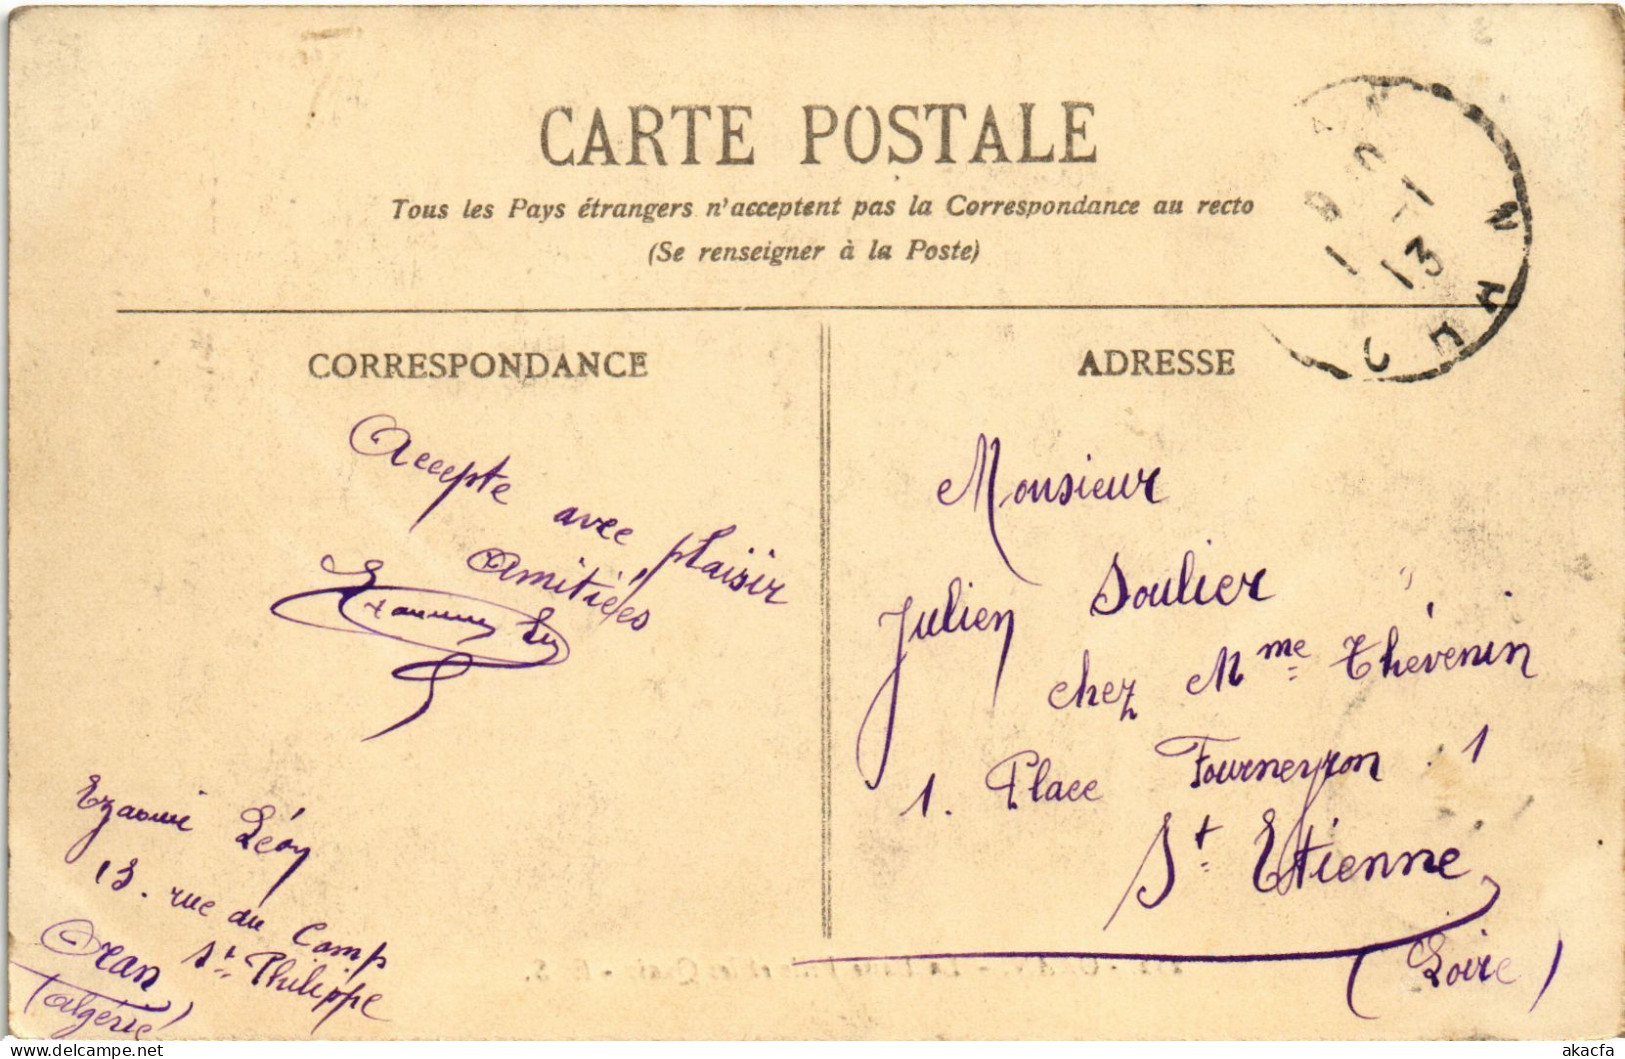 CARTE POSTALE
Tous les Pays étrangers n'acceptent pas la Correspondance au recto
(Se renseigner à la Poste)
ORAN
13
CORRESPONDANCE
Accepte avec plaisir
Amitiées
Léon
13. rue du Camp
St Philippe
Oran
(Algérie)
ADRESSE
Monsieur
Julien Soulier
chez Mme Thévenin
1. Place Fourneyron . 1
St Etienne
(Loire)
akacfa